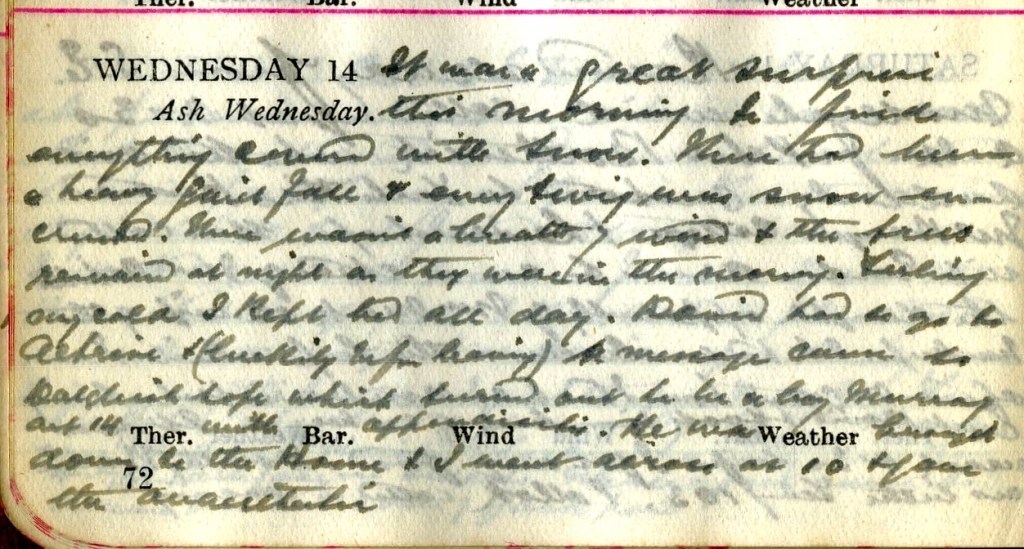 Ther. Bar. Wind Weather
WEDNESDAY 14 It was a great surprise
Ash Wednesday. this morning to find
everything covered with snow. There had been
a heavy quiet fall & every twig was snow en-
crusted. There wasn't a breath of wind & the trees
remained at night as they were in the morning. Feeling
my cold I kept bed all day. David had to go to
& (luckily before leaving) a message came to
which turned out to be a boy Murray
aet 14 with appendicitis. He was brought
Ther. Bar. Wind Weather
down to the Home & I went across at 10 & gave
72
the anaesthetic